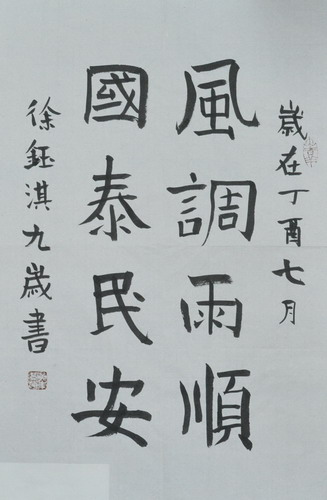 歲在丁酉七月
風調雨順
國泰民安
徐鈺淇九歲書